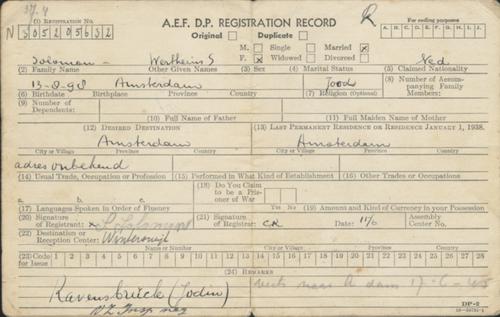 A.E.F. D.P. REGISTRATION RECORD
R
For coding purposes
A. B. C. D. E. F. G. H. I. J.
(1) REGISTRATION NO.
N 30520563 2
Original Duplicate
M. Single Married
F. Widowed Divorced
Ned
(2) Family Name Other Given Names (3) Sex (4) Marital Status (5) Claimed Nationality
13-8-98 Amsterdam Jood
(6) Birthdate Birthplace Province Country (7) Religion (Optional) (8) Number of Accompanying Family Members:
(9) Number of Dependents:
(10) Full Name of Father (11) Full Maiden Name of Mother
(12) DESIRED DESTINATION (13) LAST PERMANENT RESIDENCE OR RESIDENCE JANUARY 1, 1938.
Amsterdam Amsterdam
City or Village Province Country City or Village Province Country
adres onbekend
(14) Usual Trade, Occupation or Profession (15) Performed in What Kind of Establishment (16) Other Trades or Occupations
(18) Do You Claim to be a Prisoner of War
a. b. c. Yes No
(17) Languages Spoken in Order of Fluency (19) Amount and Kind of Currency in your Possession
(20) Signature of Registrant: (21) Signature of Registrar: Date: 11/6 Assembly Center No.
(22) Destination or Reception Center: Winterswijk
Name or Number City or Village Province Country
(23) Code for Issue 1 2 3 4 5 6 7 8 9 10 11 12 13 14 15 16 17 18 19 20 21 22 23 24 25 26 27 28
(24) REMARKS
Ravensbrück (Jodin)
naar A dam 17-6-45
DP-2